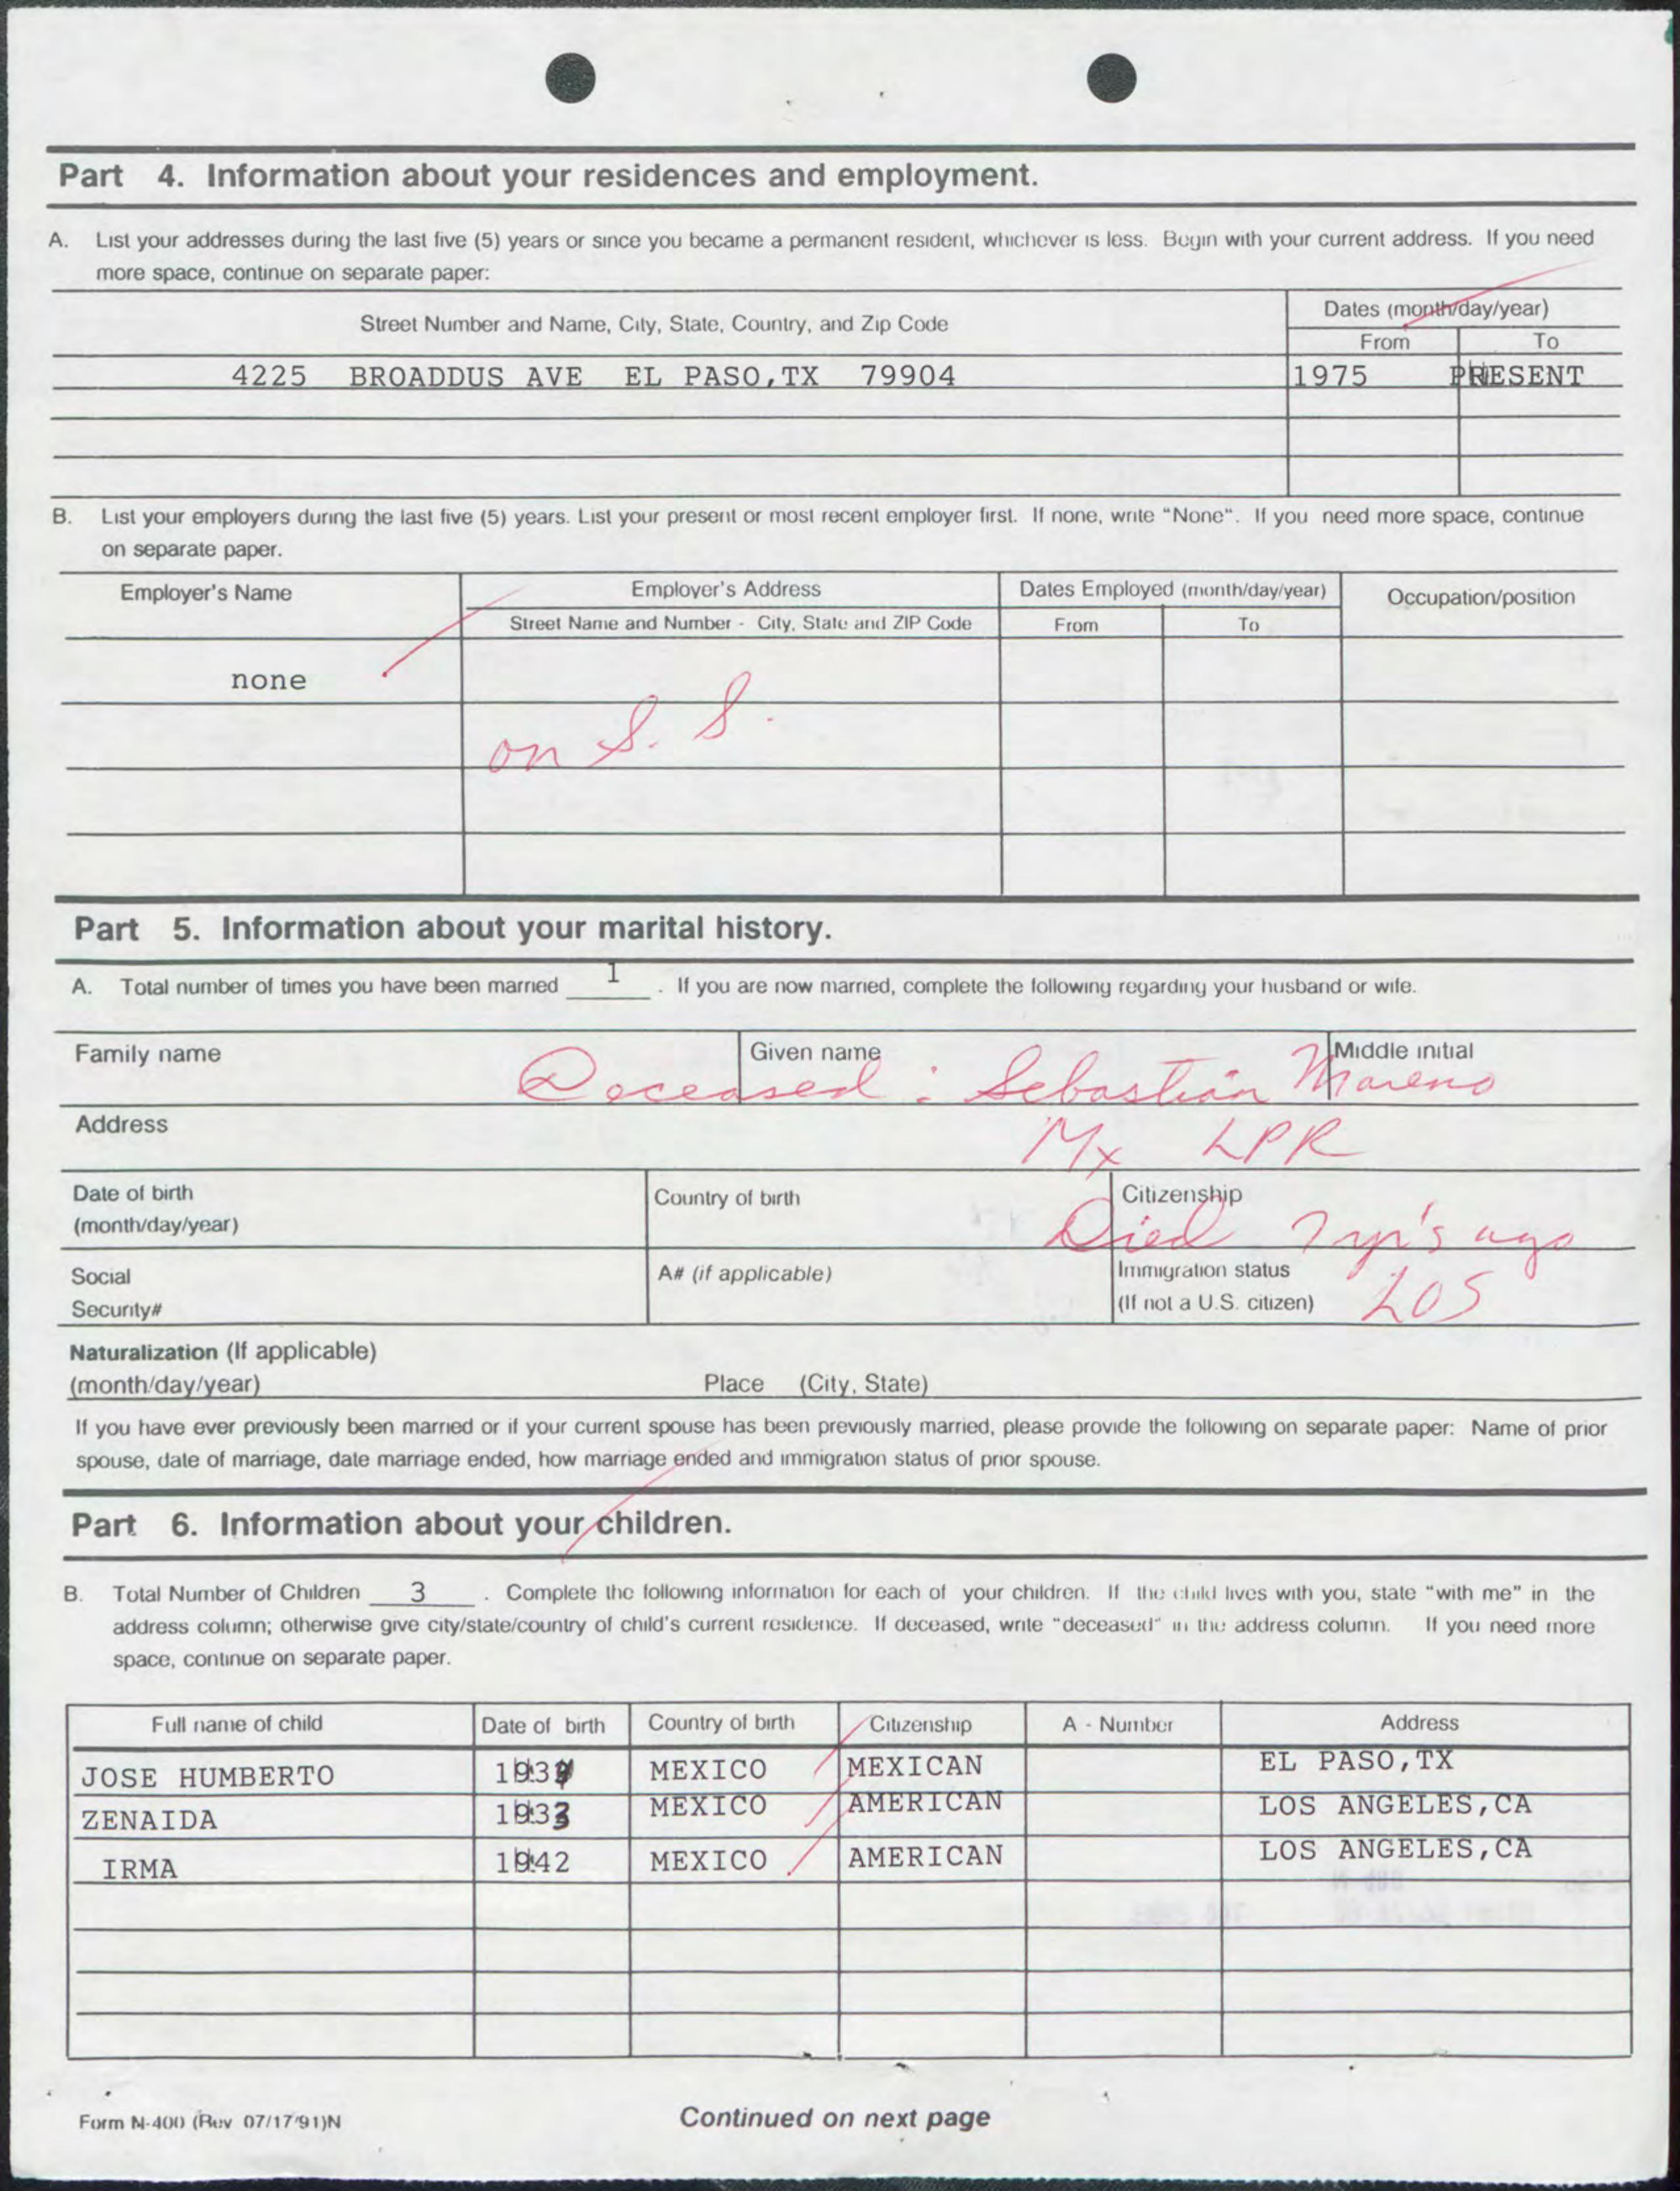 Part 4. Information about your residences and employment.
A. List your addresses during the last five (5) years or since you became a permanent resident, whichever is less. Begin with your current address. If you need
more space, continue on separate paper:
Street Number and Name, City, State, Country, and Zip Code
Dates (month/day/year)
From To
4225 BROADDUS AVE EL PASO,TX 79904 1975 PRESENT
B. List your employers during the last five (5) years. List your present or most recent employer first. If none, write "None". If you need more space, continue
on separate paper.
Employer's Name Employer's Address Dates Employed (month/day/year) Occupation/position
Street Name and Number - City, State and ZIP Code From To
none
on S. S.
Part 5. Information about your marital history.
A. Total number of times you have been married 1 . If you are now married, complete the following regarding your husband or wife.
Family name Given name Middle initial
Deceased : Sebastián Moreno
Address
Mx LPR
Date of birth Country of birth Citizenship
(month/day/year)
Died yr's ago
Social A# (if applicable) Immigration status
Security# (If not a U.S. citizen) LOS
Naturalization (If applicable)
(month/day/year) Place (City, State)
If you have ever previously been married or if your current spouse has been previously married, please provide the following on separate paper: Name of prior
spouse, date of marriage, date marriage ended, how marriage ended and immigration status of prior spouse.
Part 6. Information about your children.
B. Total Number of Children 3 . Complete the following information for each of your children. If the child lives with you, state "with me" in the
address column; otherwise give city/state/country of child's current residence. If deceased, write "deceased" in the address column. If you need more
space, continue on separate paper.
Full name of child Date of birth Country of birth Citizenship A - Number Address
JOSE HUMBERTO MEXICO MEXICAN EL PASO,TX
ZENAIDA MEXICO AMERICAN LOS ANGELES,CA
IRMA 1942 MEXICO AMERICAN LOS ANGELES,CA
Form N-400 (Rev 07/17/91)N Continued on next page